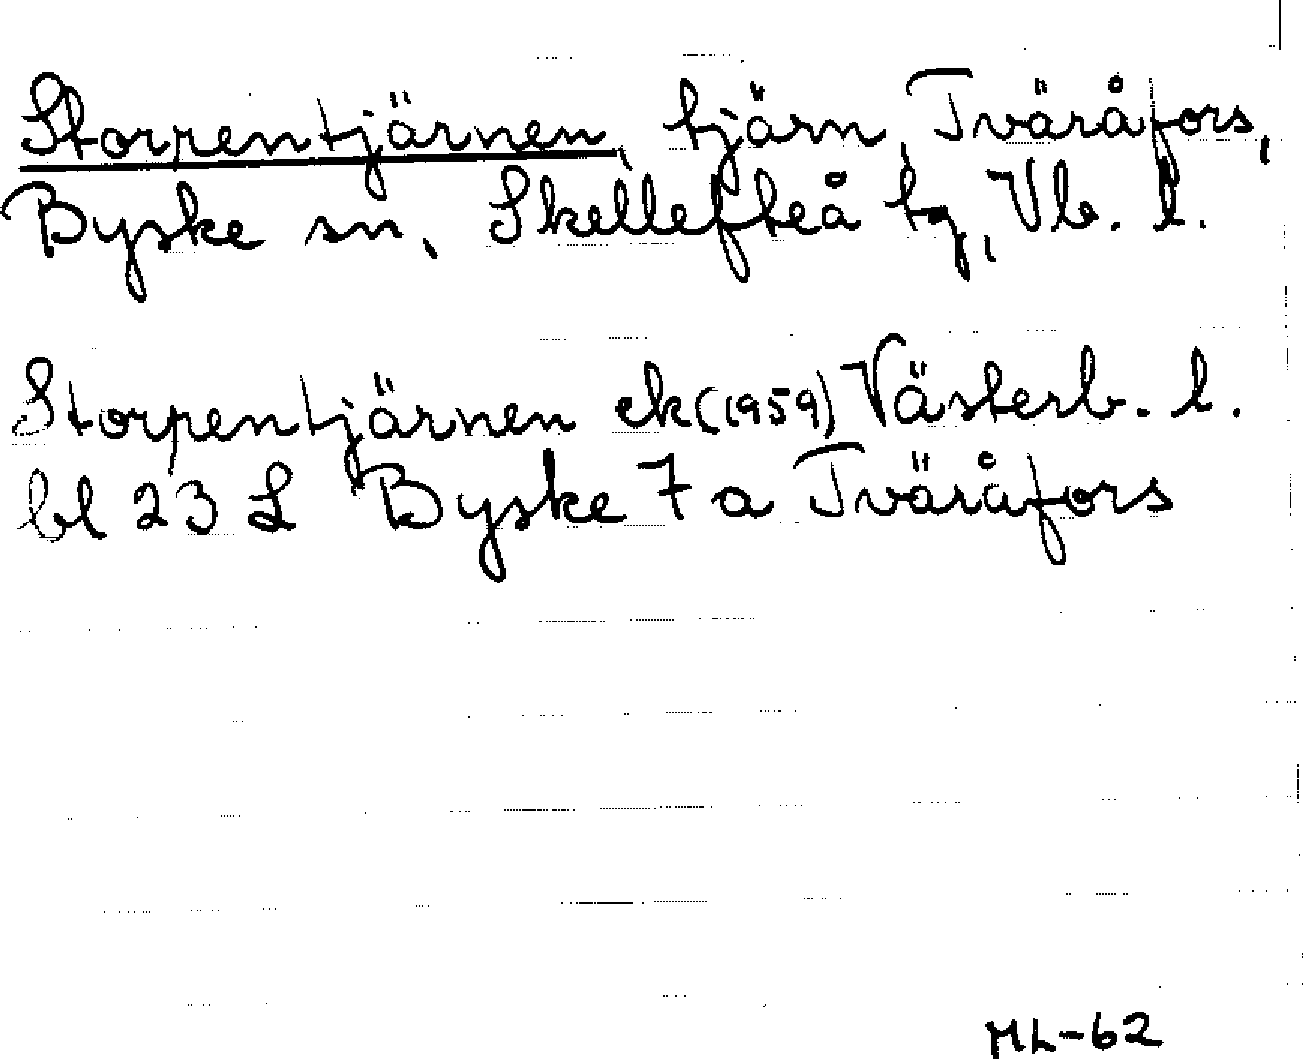 Storpentjärnen, tjärn, Tväråfors,
Byske sn, Skellefteå tg, Vb. l.
Storpentjärnen ek (1959) Västerb. l.
bl 23 L Byske 7 a Tväråfors
ML-62